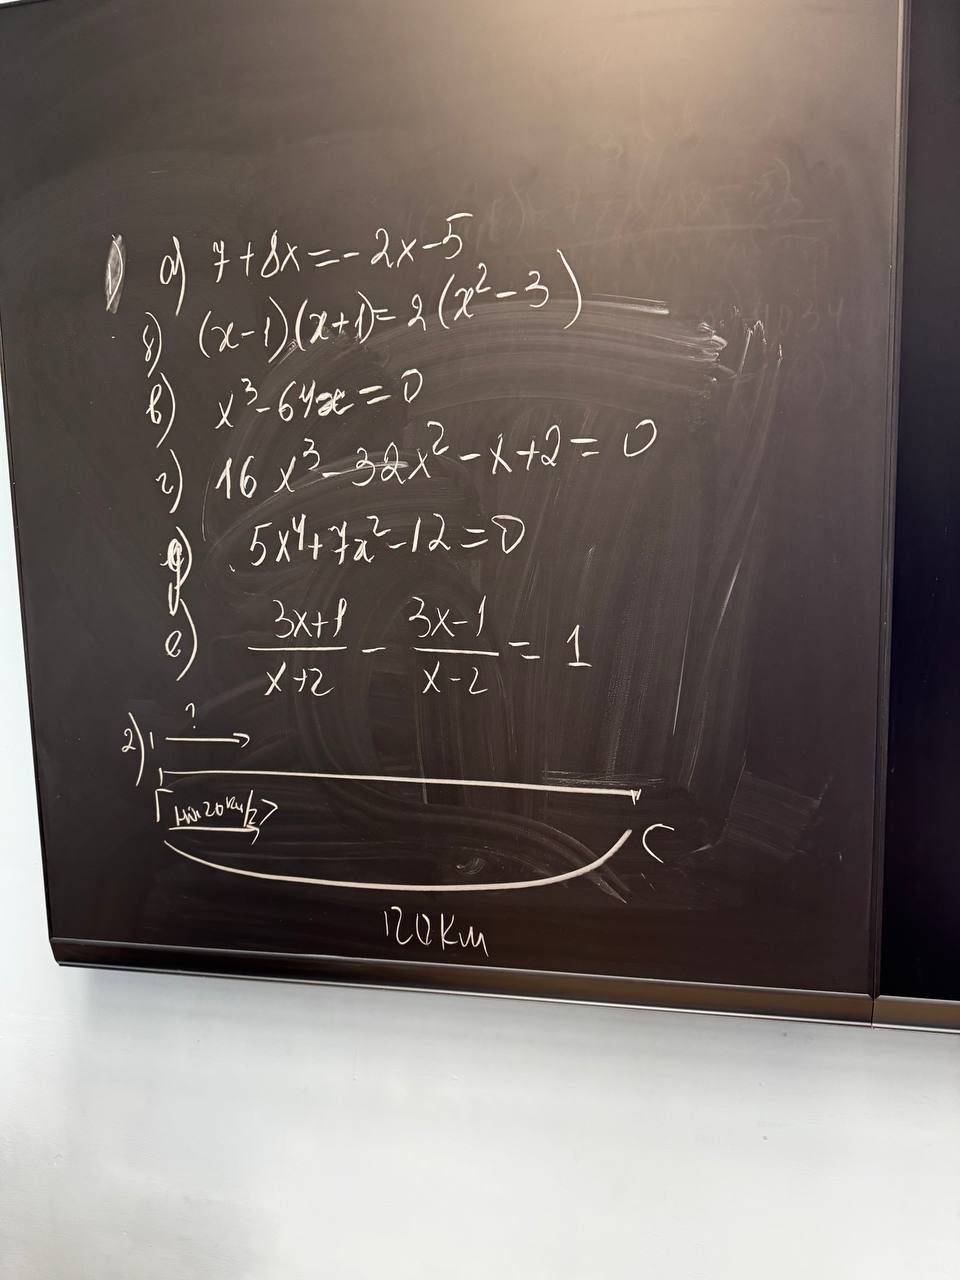 1) а) 7+8x=-2x-5
б) (x-1)(x+1)=2(x²-3)
в) x³-64x=0
г) 16x³-32x²-x+2=0
д) 5x⁴+7x²-12=0
е) (3x+1)/(x+2) - (3x-1)/(x-2) = 1
2) ?
Г на 20 км/ч >
С
120 км